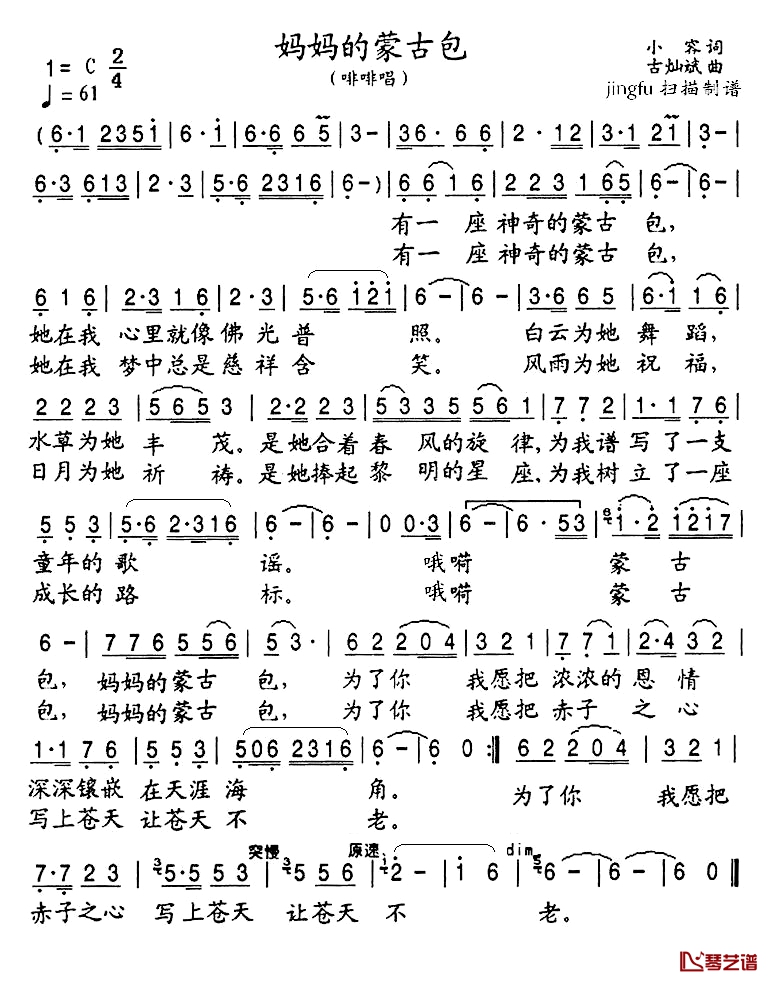 妈妈的蒙古包
（啡啡唱）
小容词
古灿斌曲
jingfu 扫描制谱
1= C 2/4
♩= 61
(6·1 2351 | 6·1 | 6·6 65 | 3- | 36· 66 | 2· 12 | 3·1 21 | 3- |
6·3 613 | 2·3 | 5·6 2316 | 6-) | 66 16 | 223 165 | 6- | 6- |
有一 座神奇的蒙古 包,
有一 座神奇的蒙古 包,
616 | 2·3 16 | 2·3 | 5·6 121 | 6- | 6- | 3·6 65 | 61 16 |
她在我 心里就像佛光普 照。 白云为她 舞蹈,
她在我 梦中总是慈祥含 笑。 风雨为她 祝福,
2223 | 565 3 | 2·223 | 5335 561 | 7 72 | 1·1 76 |
水草为她 丰 茂。是她合着春 风的旋 律,为我谱写了一支
日月为她 祈 祷。是她捧起黎 明的星 座,为我树立了一座
5 53 | 5·6 2·316 | 6- | 6- | 0 0·3 | 6- | 6· 53 | 1·2 1217 |
童年的歌 谣。 哦嗬 蒙古
成长的路 标。 哦嗬 蒙古
6- | 776 556 | 53· | 62 204 | 321 | 771 | 2·4 32 |
包, 妈妈的蒙古 包, 为了你 我愿把 浓浓的恩情
包, 妈妈的蒙古 包, 为了你 我愿把 赤子 之心
1·1 76 | 553 | 506 2316 | 6- | 6 0 :‖ 62 204 | 321 |
深深镶嵌 在天涯海 角。 为了你 我愿把
写上苍天 让苍天不 老。
突慢 原速 dim
7·7 23 | 5·5 53 | 5 56 | 2- | 1 6 | 6- | 6- | 6 0 ‖
赤子之心 写上苍天 让苍天 不 老。
琴艺谱